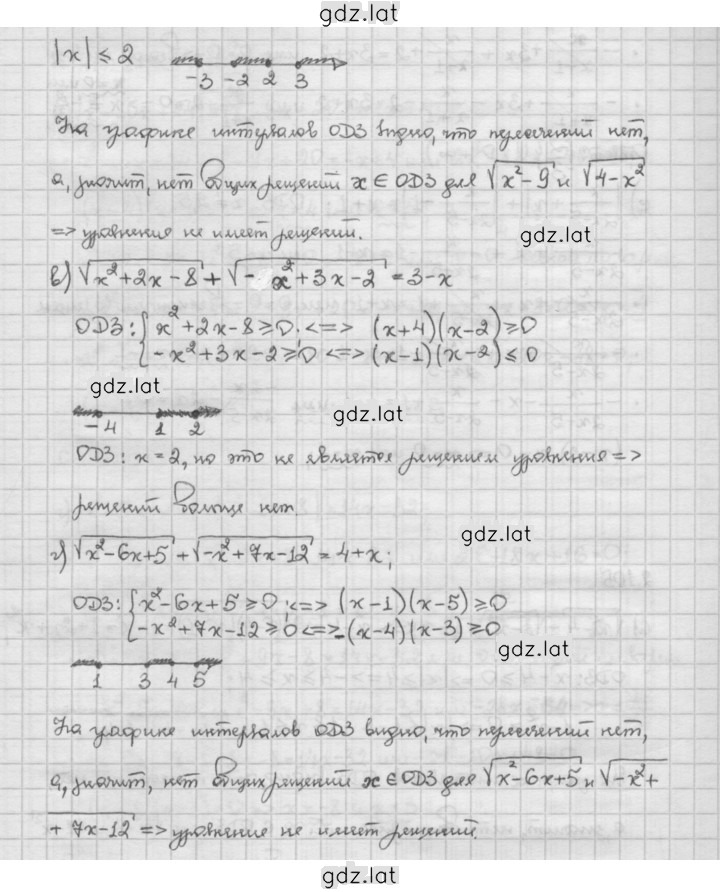 gdz.lat
|x| ≤ 2
-3 -2 2 3
На графике интервалов ОДЗ видно, что пересечений нет,
а, значит, нет общих решений x ∈ ОДЗ для √(x²-9) и √(4-x²)
=> уравнение не имеет решений.
gdz.lat
в) √(x²+2x-8) + √(-x²+3x-2) = 3-x
ОДЗ: { x²+2x-8 ≥ 0; <=> (x+4)(x-2) ≥ 0
-x²+3x-2 ≥ 0 <=> (x-1)(x-2) ≤ 0
gdz.lat
gdz.lat
-4 1 2
ОДЗ: x=2, но это не является решением уравнения =>
решений больше нет.
gdz.lat
г) √(x²-6x+5) + √(-x²+7x-12) = 4+x;
ОДЗ: { x²-6x+5 ≥ 0; <=> (x-1)(x-5) ≥ 0
-x²+7x-12 ≥ 0 <=> -(x-4)(x-3) ≥ 0
gdz.lat
1 3 4 5
На графике интервалов ОДЗ видно, что пересечений нет,
а, значит, нет общих решений x ∈ ОДЗ для √(x²-6x+5) и √(-x²+
+7x-12) => уравнение не имеет решений.
gdz.lat